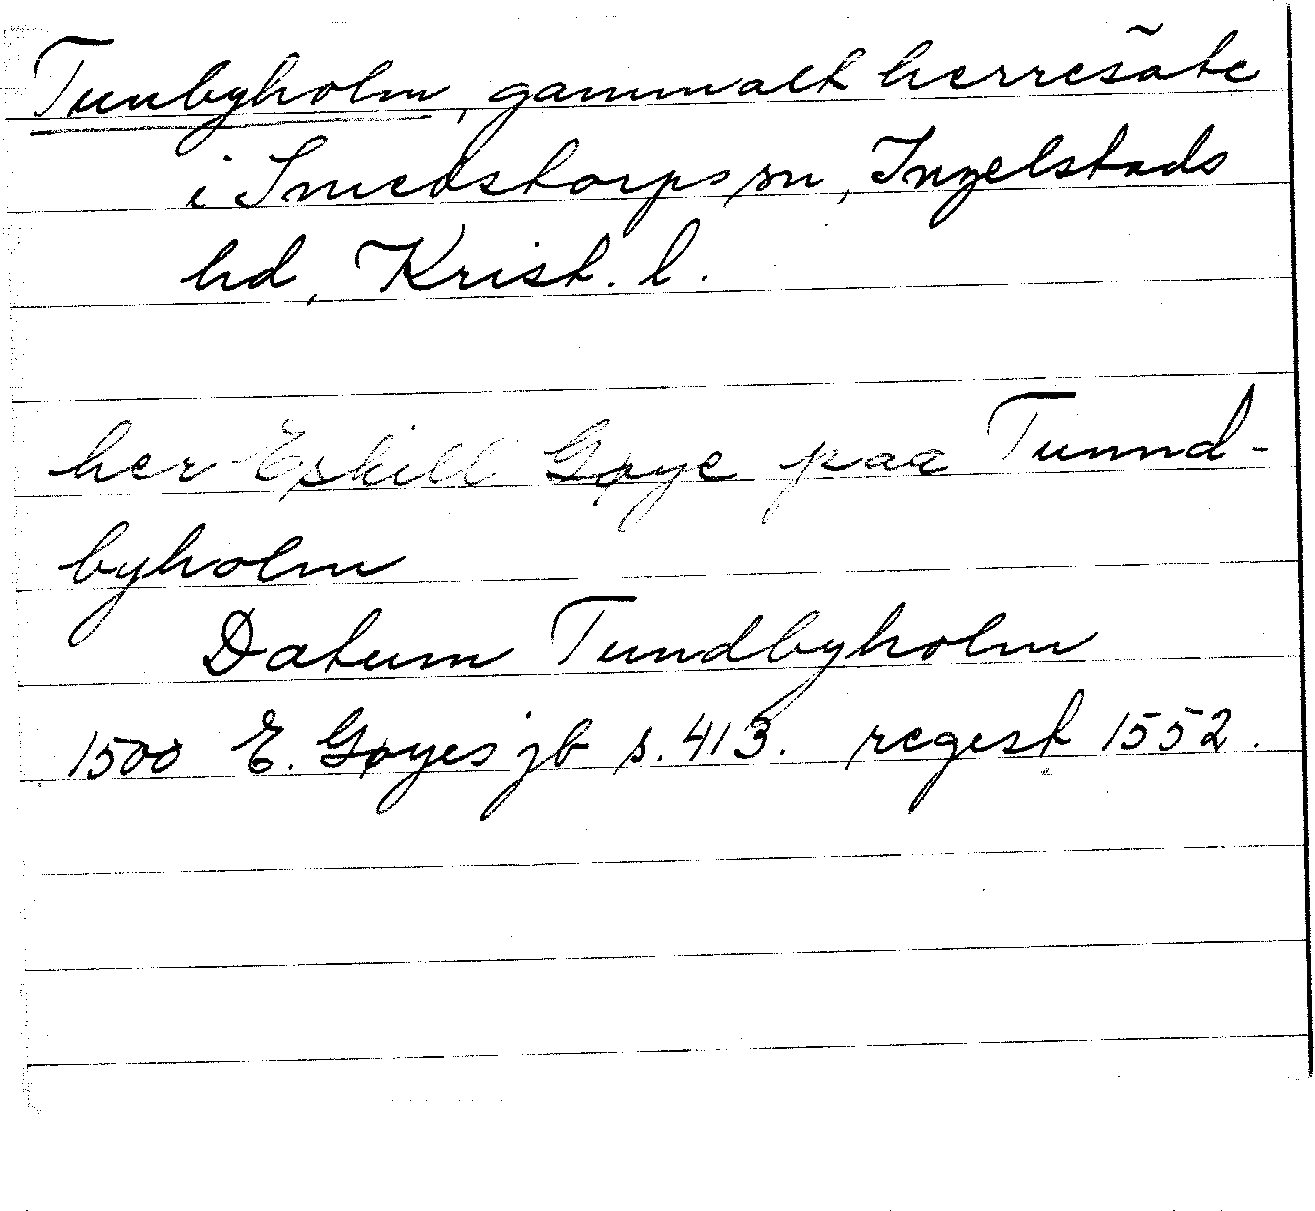 Tunbyholm, gammalt herresäte
i Smedstorps sn, Ingelstads
hd, Krist. l.
her Eskill Gøye paa Tunnd-
byholm
Datum Tundbyholm
1500 E. Gøyes jb s. 413. regest 1552.